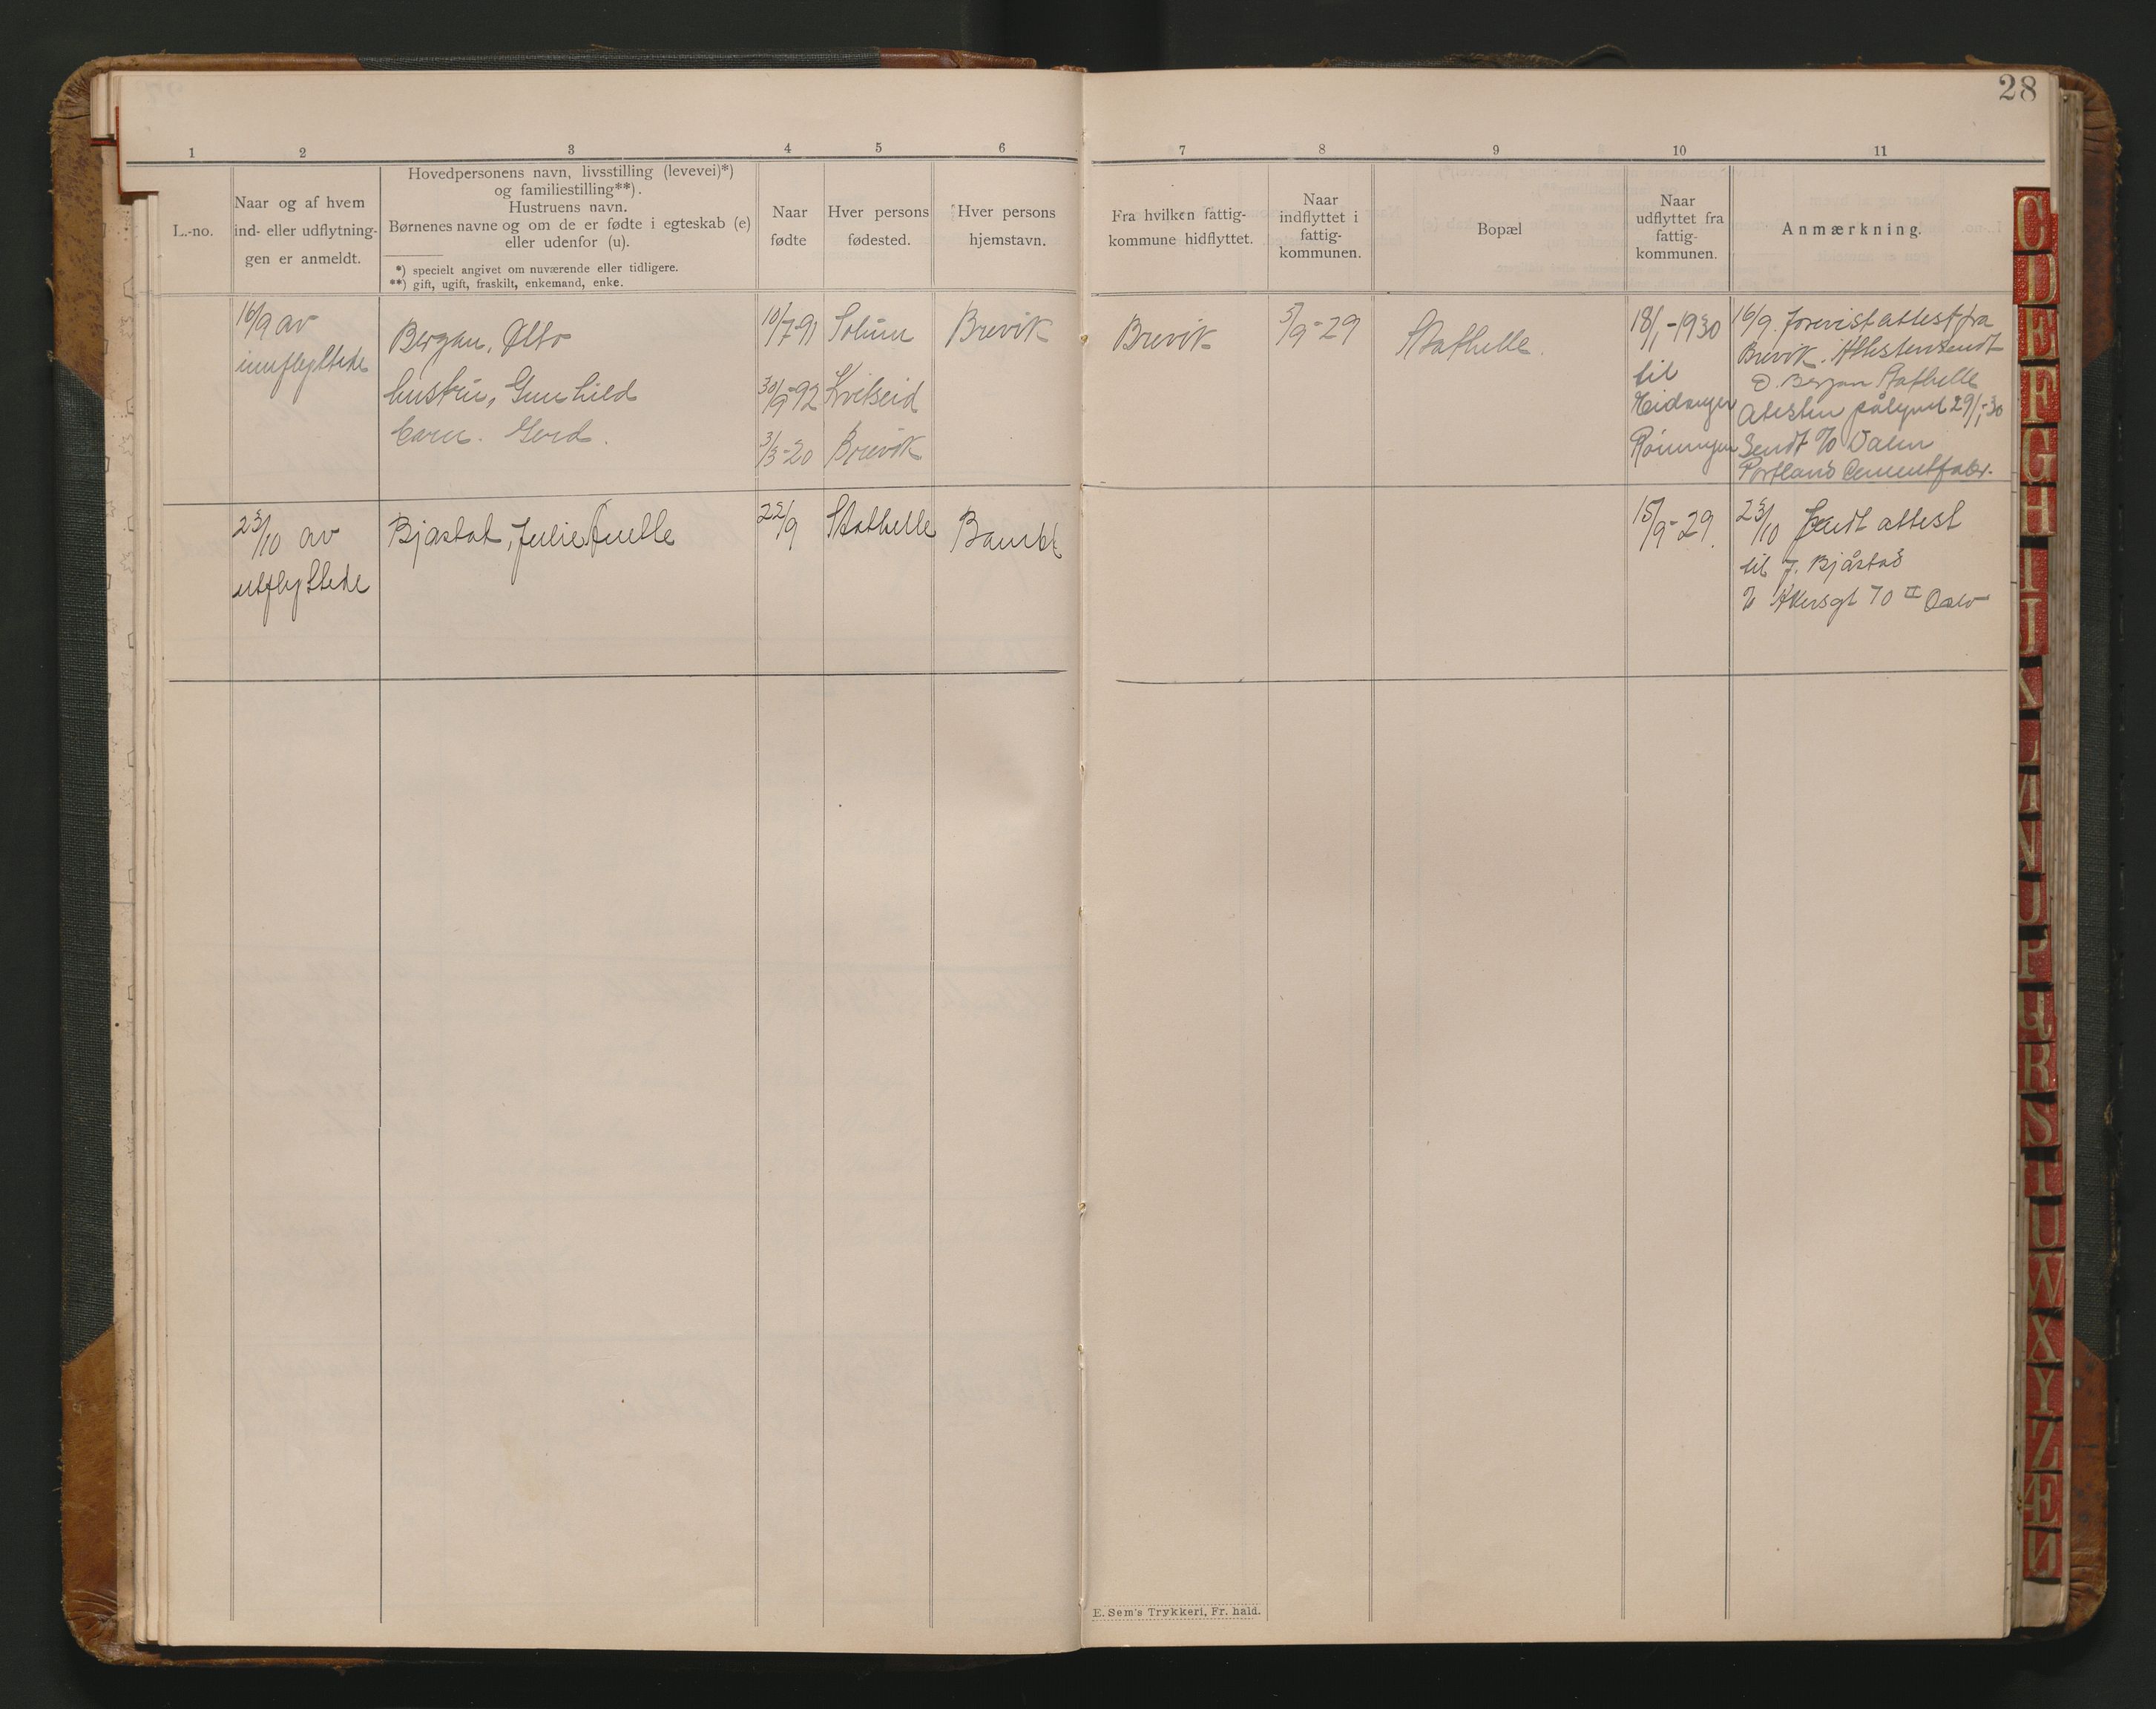 28
1 2 3 4 5 6 7 8 9 10 11
L.-no.
Naar og af hvem
ind- eller udflytnin-
gen er anmeldt.
Hovedpersonens navn, livsstilling (levevei)*)
og familiestilling**).
Hustruens navn.
Børnenes navne og om de er fødte i egteskab (e)
eller udenfor (u).
*) specielt angivet om nuværende eller tidligere.
**) gift, ugift, fraskilt, enkemand, enke.
Naar
fødte
Hver persons
fødested.
Hver persons
hjemstavn.
Fra hvilken fattig-
kommune hidflyttet.
Naar
indflyttet i
fattig-
kommunen.
Bopæl
Naar
udflyttet fra
fattig-
kommunen.
Anmærkning.
16/9 av
innflyttede
Bergan, Otto
hustru, Gunhild
barn. Gerd.
10/7-91
30/9-92
3/3-20
Solum
Kviteseid
Brevik
Brevik
Brevik
5/9-29
Stathelle.
18/1-1930
til
Eidanger
16/9. forevist attest fra
Brevik. Attesten sendt
O. Bergan Stathelle
Atesten pålynet 29/1-30
Sendt % Dalen
Portland Cementfabr.
23/10 av
utflyttede
Bjåstad, Julie
22/9
Stathelle
Bamble
15/9-29.
23/10 Sendt attest
til J. Bjåstad
% Akersgt 70 II Oslo
E. Sem's Trykkeri, Fr. hald.
C
D
E
F
G
H
I
J
K
L
M
N
O
P
Q
R
S
T
U
W
X
Y
Z
Æ